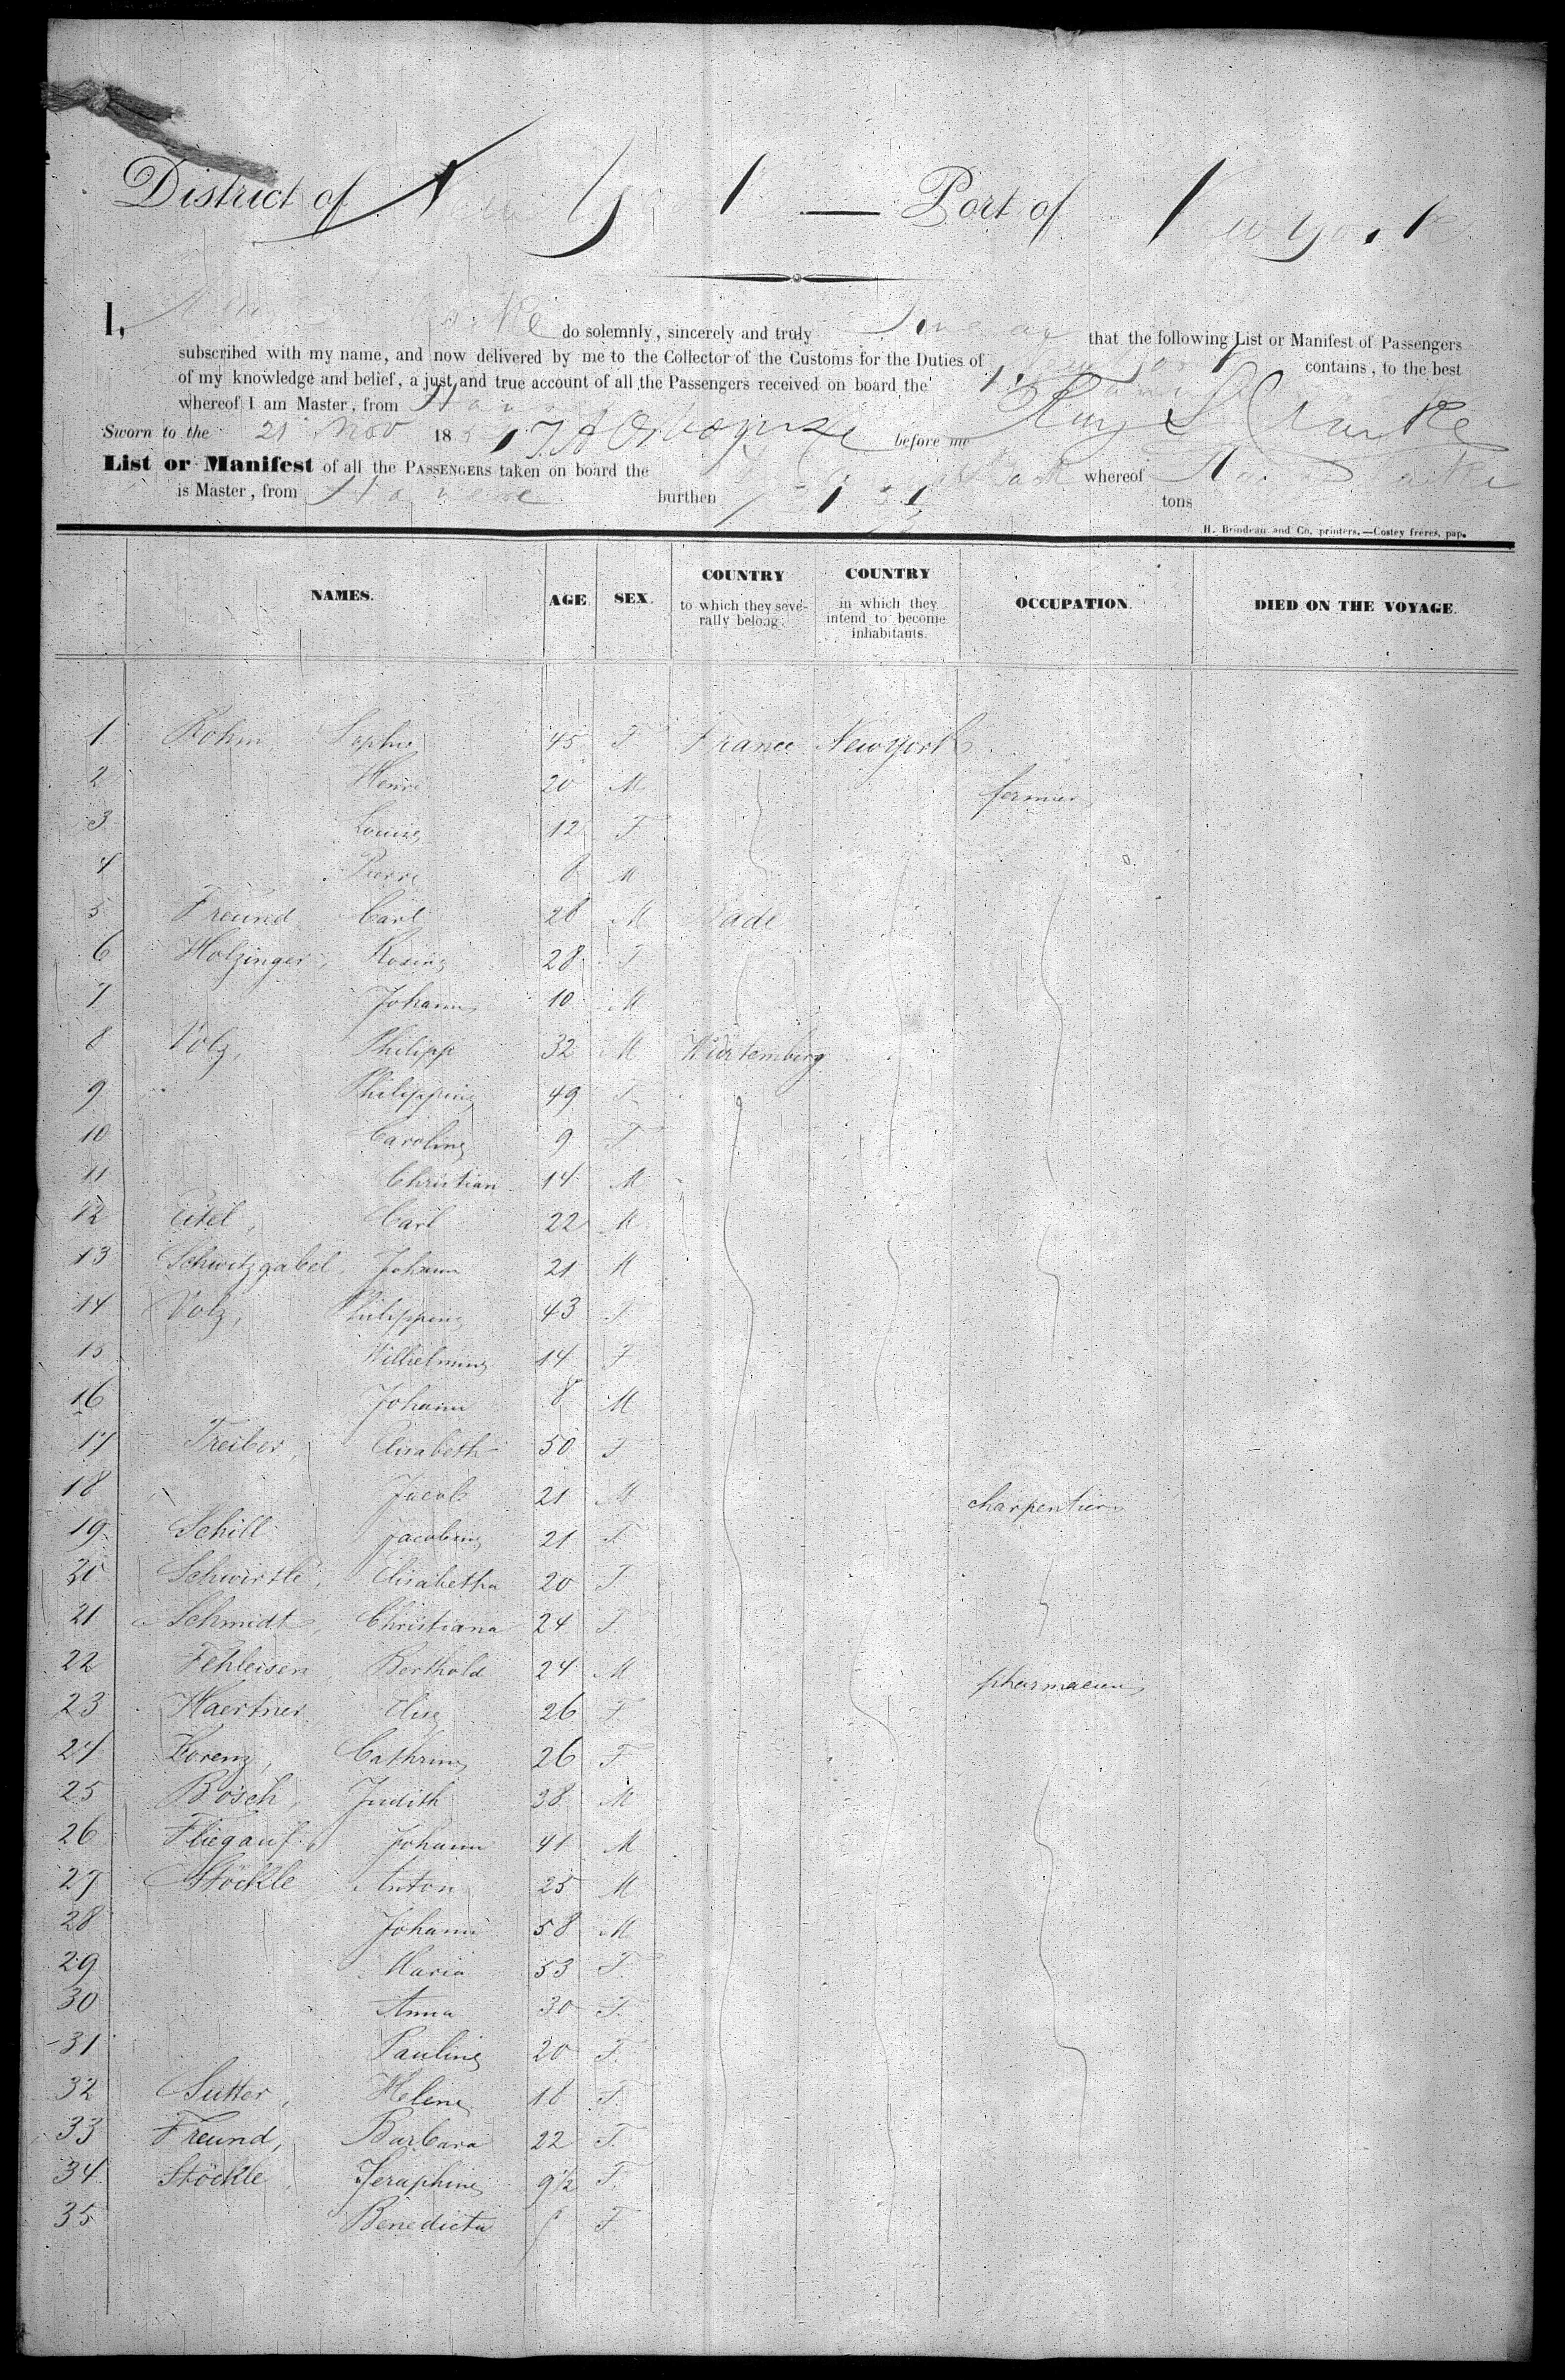 District of New York — Port of New York
I, do solemnly, sincerely and truly Swear that the following List or Manifest of Passengers
subscribed with my name, and now delivered by me to the Collector of the Customs for the Duties of New York contains, to the best
of my knowledge and belief, a just and true account of all the Passengers received on board the
whereof I am Master, from Havre
Sworn to the 21 Nov 18 before me
List or Manifest of all the PASSENGERS taken on board the whereof
is Master, from Havre burthen tons
H. Brindeau and Co, printers.—Costey frères, pap.
NAMES. AGE SEX. COUNTRY to which they severally belong. COUNTRY in which they intend to become inhabitants. OCCUPATION. DIED ON THE VOYAGE.
1 Rohm, Sophie 45 F France New York
2 Henri 20 M fermier
3 Louise 12 F
4 Pierre 8 M
5 Freund Carl 28 M Bade
6 Holzinger, Rosine 28 F
7 Johann 10 M
8 Volz, Philipp 32 M Würtemberg
9 Philippine 49 F
10 Caroline 9 F
11 Christian 14 M
12 Eitel, Carl 22 M
13 Schwitzgabel, Johann 21 M
14 Volz, Philippine 43 F
15 Wilhelmine 14 F
16 Johann 8 M
17 Treiber, Elisabeth 50 F
18 Jacob 21 M charpentier
19 Schill Jacobine 21 F
20 Schwirtle, Elisabetha 20 F
21 Schmidt, Christiana 24 F
22 Fehleisen Berthold 24 M pharmacien
23 Haertner Elise 26 F
24 Lorenz, Cathrine 26 F
25 Bösch, Judith 38 M
26 Fliegauf Johann 41 M
27 Stöckle Anton 25 M
28 Johann 58 M
29 Maria 53 F
30 Anna 30 F
31 Pauline 20 F
32 Sutter, Helene 18 F
33 Freund, Barbara 22 F
34 Stöckle, Seraphine 9½ F
35 Benedicta F